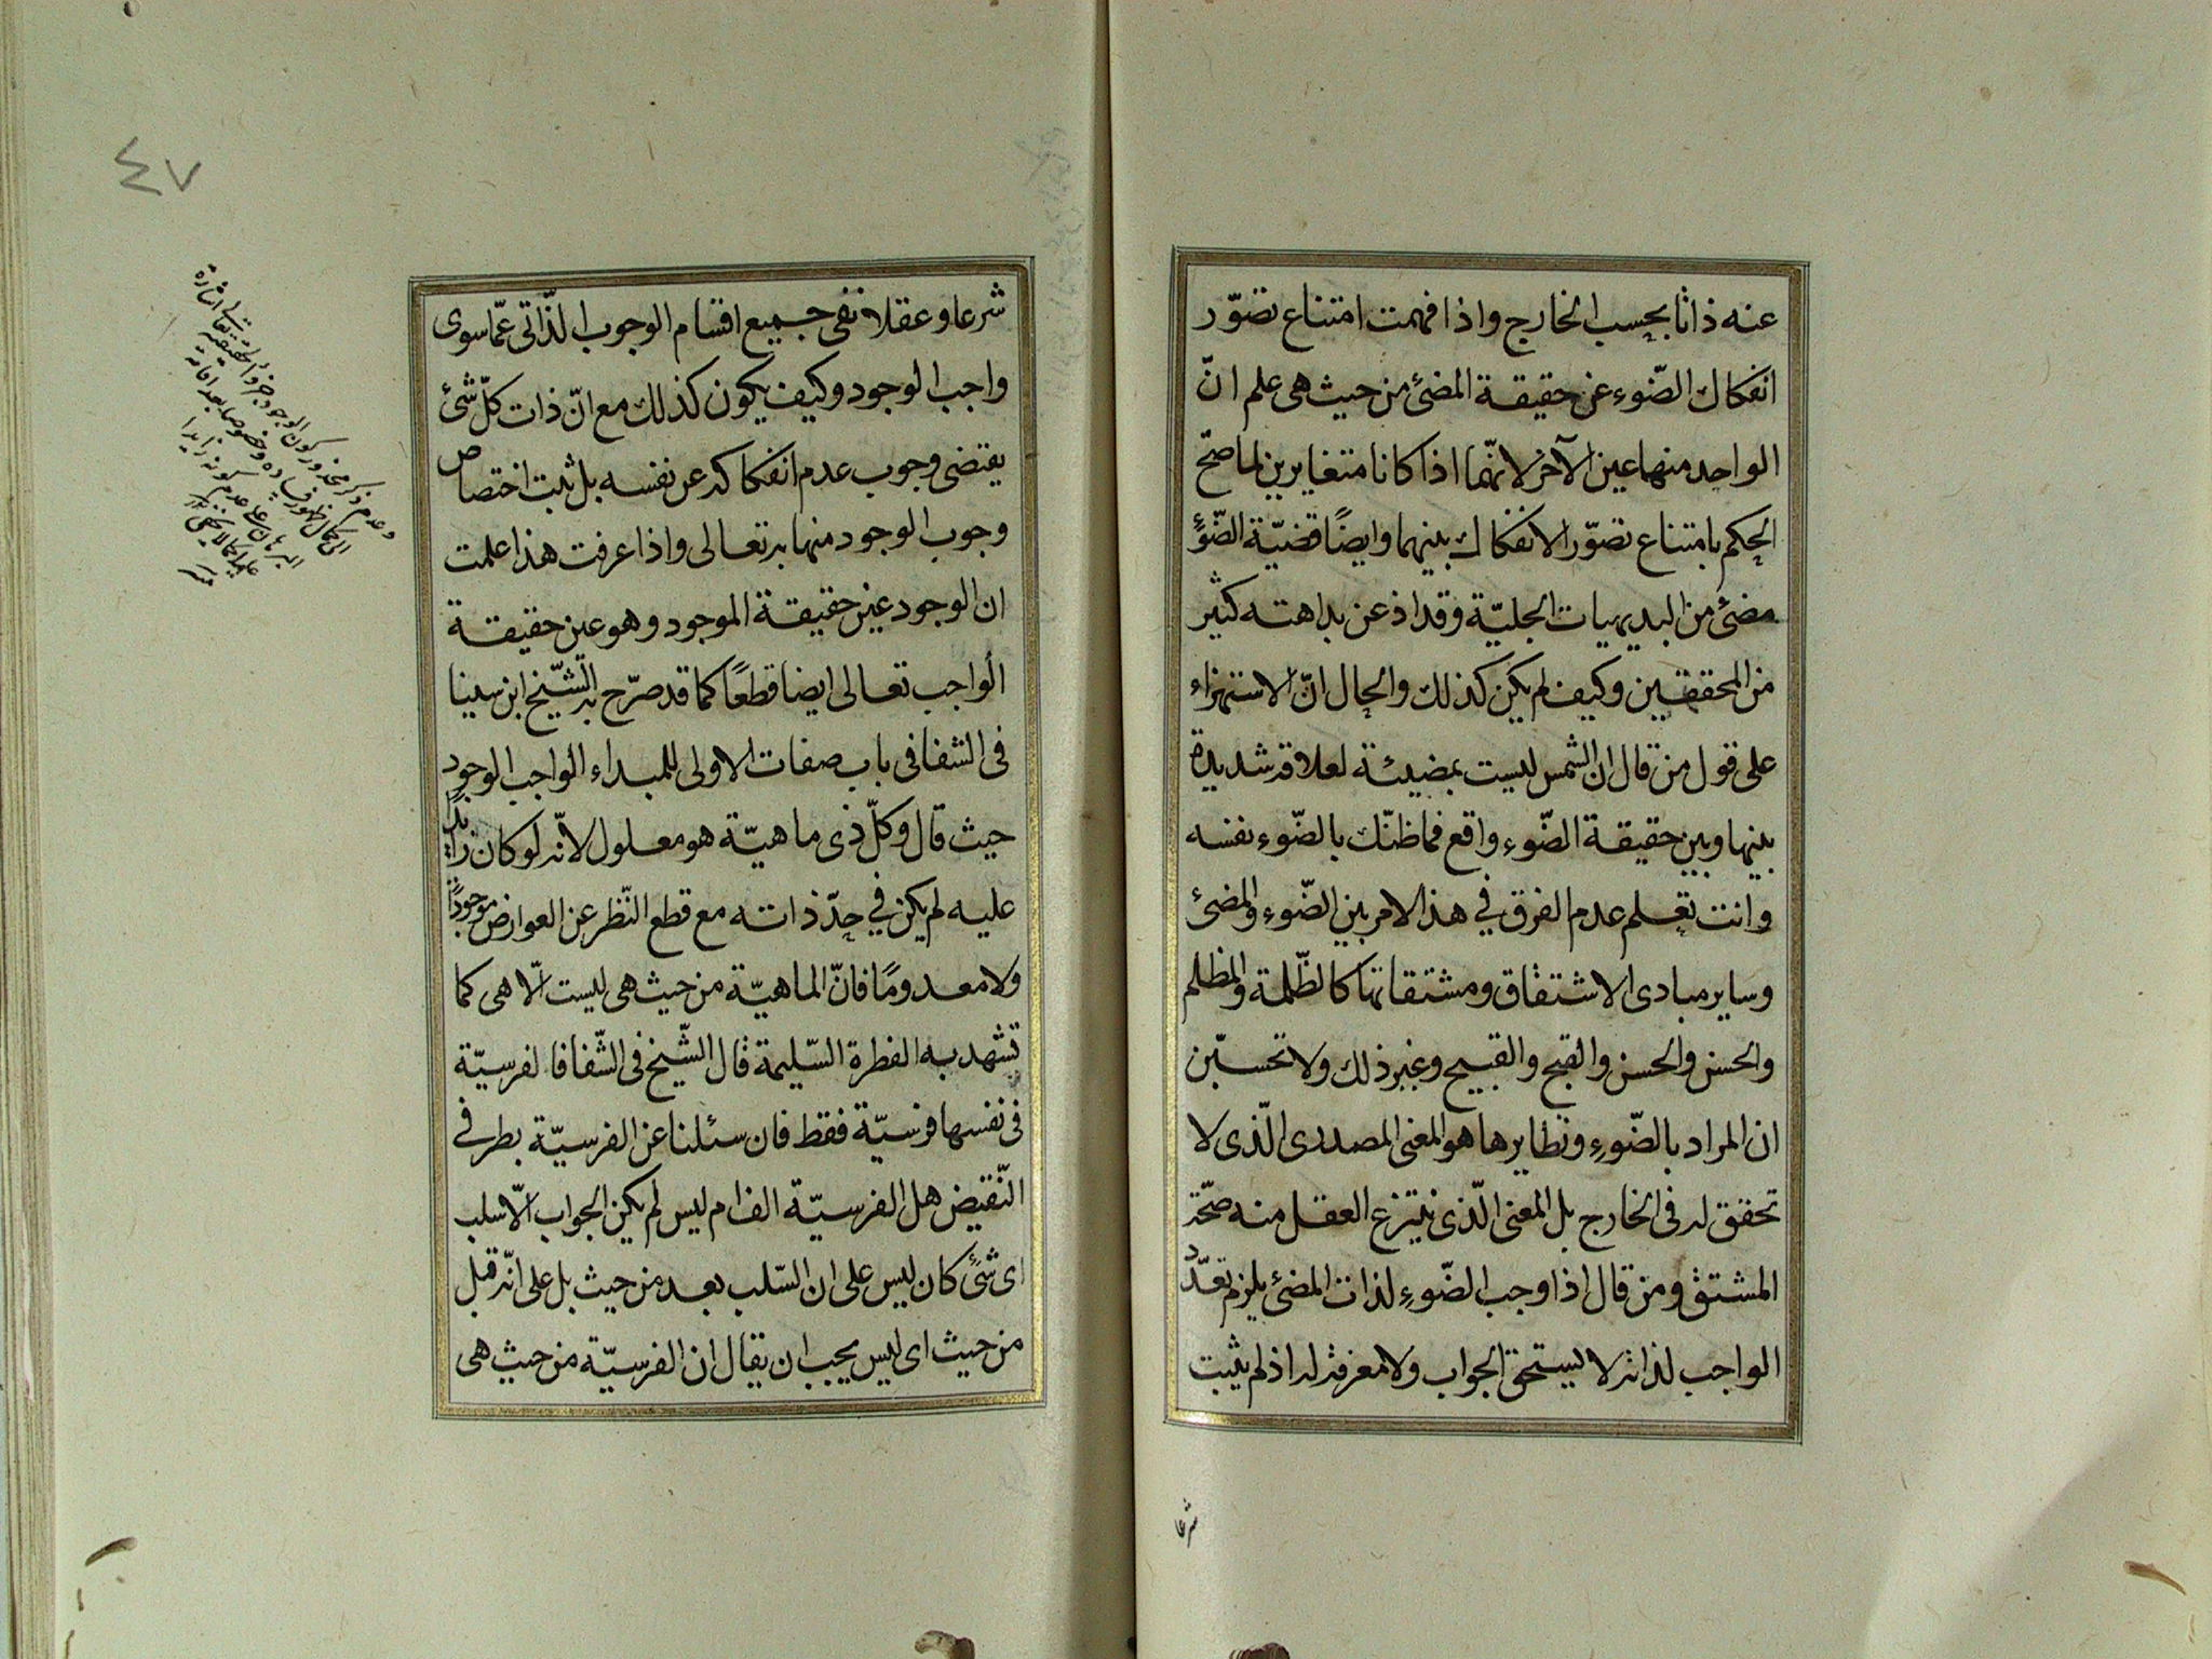 عنه ذاتا بحسب الخارج واذا فهمت امتناع تصوّر
انفكاك الضّوء عن حقيقة المضئ من حيث هى علم انّ
الواحد منهما عين الآخر لانّهما اذا كانا متغايرين لما صحّ
الحكم بامتناع تصوّر الانفكاك بينهما وايضًا قضيّة الضّوء
مضئ من البديهيات الجليّة وقد اذعن بداهته كثير
من المحققين وكيف لم يكن كذلك والحال انّ الاستهزاء
على قول من قال ان الشمس ليست بمضيئة لعلاقة شديدة
بينها وبين حقيقة الضّوء واقع فما ظنّك بالضّوء نفسه
وانت تعلم عدم الفرق في هذا الامر بين الضّوء والمضئ
وساير مبادى الاشتقاق ومشتقاتها كالظّلمة والمظلم
والحسن والحسن والقبح والقبيح وغير ذلك ولا تحسبّن
ان المراد بالضّوء ونظايرها هو المعنى المصدرى الّذى لا
تحقق له فى الخارج بل المعنى الّذى ينتزع العقل منه صحّة
المشتق ومن قال اذا وجب الضّوء لذات المضئ يلزم تعدّد
الواجب لذاته لا يستحق الجواب ولا معرفة له اذ لم يثبت
شرعا
٤٧
شرعا وعقلا نفى جميع اقسام الوجوب الذّاتى عمّا سوى
واجب الوجود وكيف يكون كذلك مع انّ ذات كلّ شئ
يقتضى وجوب عدم انفكاكه عن نفسه بل ثبت اختصاص
وجوب الوجود منها به تعالى واذا عرفت هذا علمت
ان الوجود عين حقيقة الموجود وهو عين حقيقة
الواجب تعالى ايضا قطعًا كما قد صرّح به الشّيخ ابن سينا
فى الشفا فى باب صفات الاولى للمبداء الواجب الوجود
حيث قال وكلّ ذى ماهيّة هو معلول لانّه لو كان زايدًا
عليه لم يكن في حدّ ذاته مع قطع النّظر عن العوارض موجودًا
ولا معدومًا فانّ الماهيّة من حيث هى ليست الّا هى كما
تشهد به الفطرة السّليمة قال الشّيخ فى الشّفا فالفرسيّة
فى نفسها فرسيّة فقط فان سئلنا عن الفرسيّة بطرفي
النّقيض هل الفرسيّة الف ام ليس لم يكن الجواب الّا سلب
اى شئ كان ليس على ان السّلب بعد من حيث بل على انّه قبل
من حيث اى ليس يجب ان يقال ان الفرسيّة من حيث هى